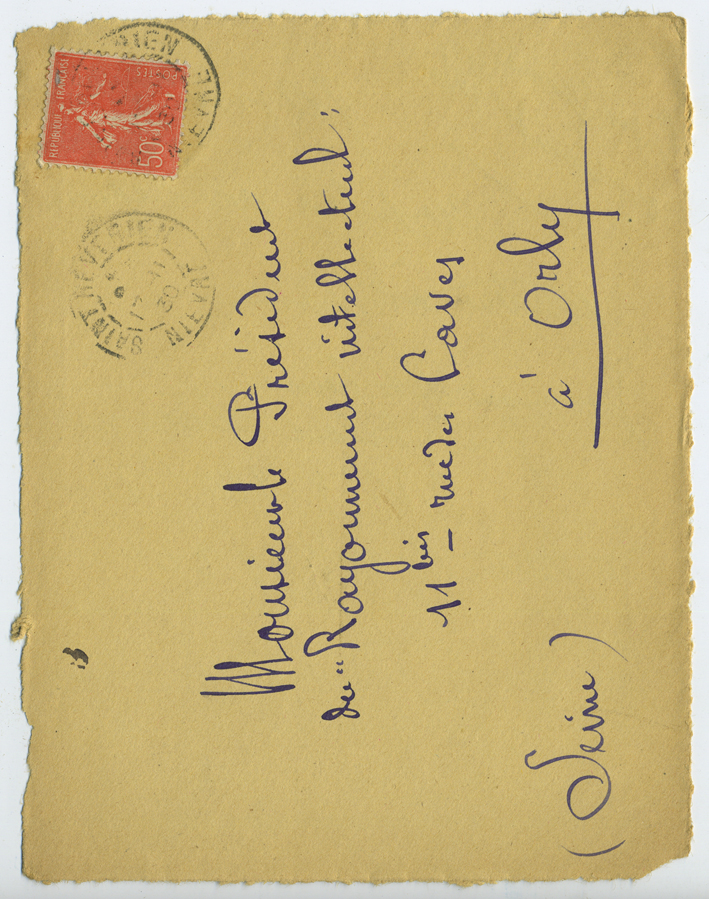 RÉPUBLIQUE FRANÇAISE
POSTES
50c
SAINT REVERIEN
17 -11
30
NIEVRE
Monsieur le Président
du "Rayonnement intellectuel"
11 bis - rue des Caves
à Orly
(Seine)